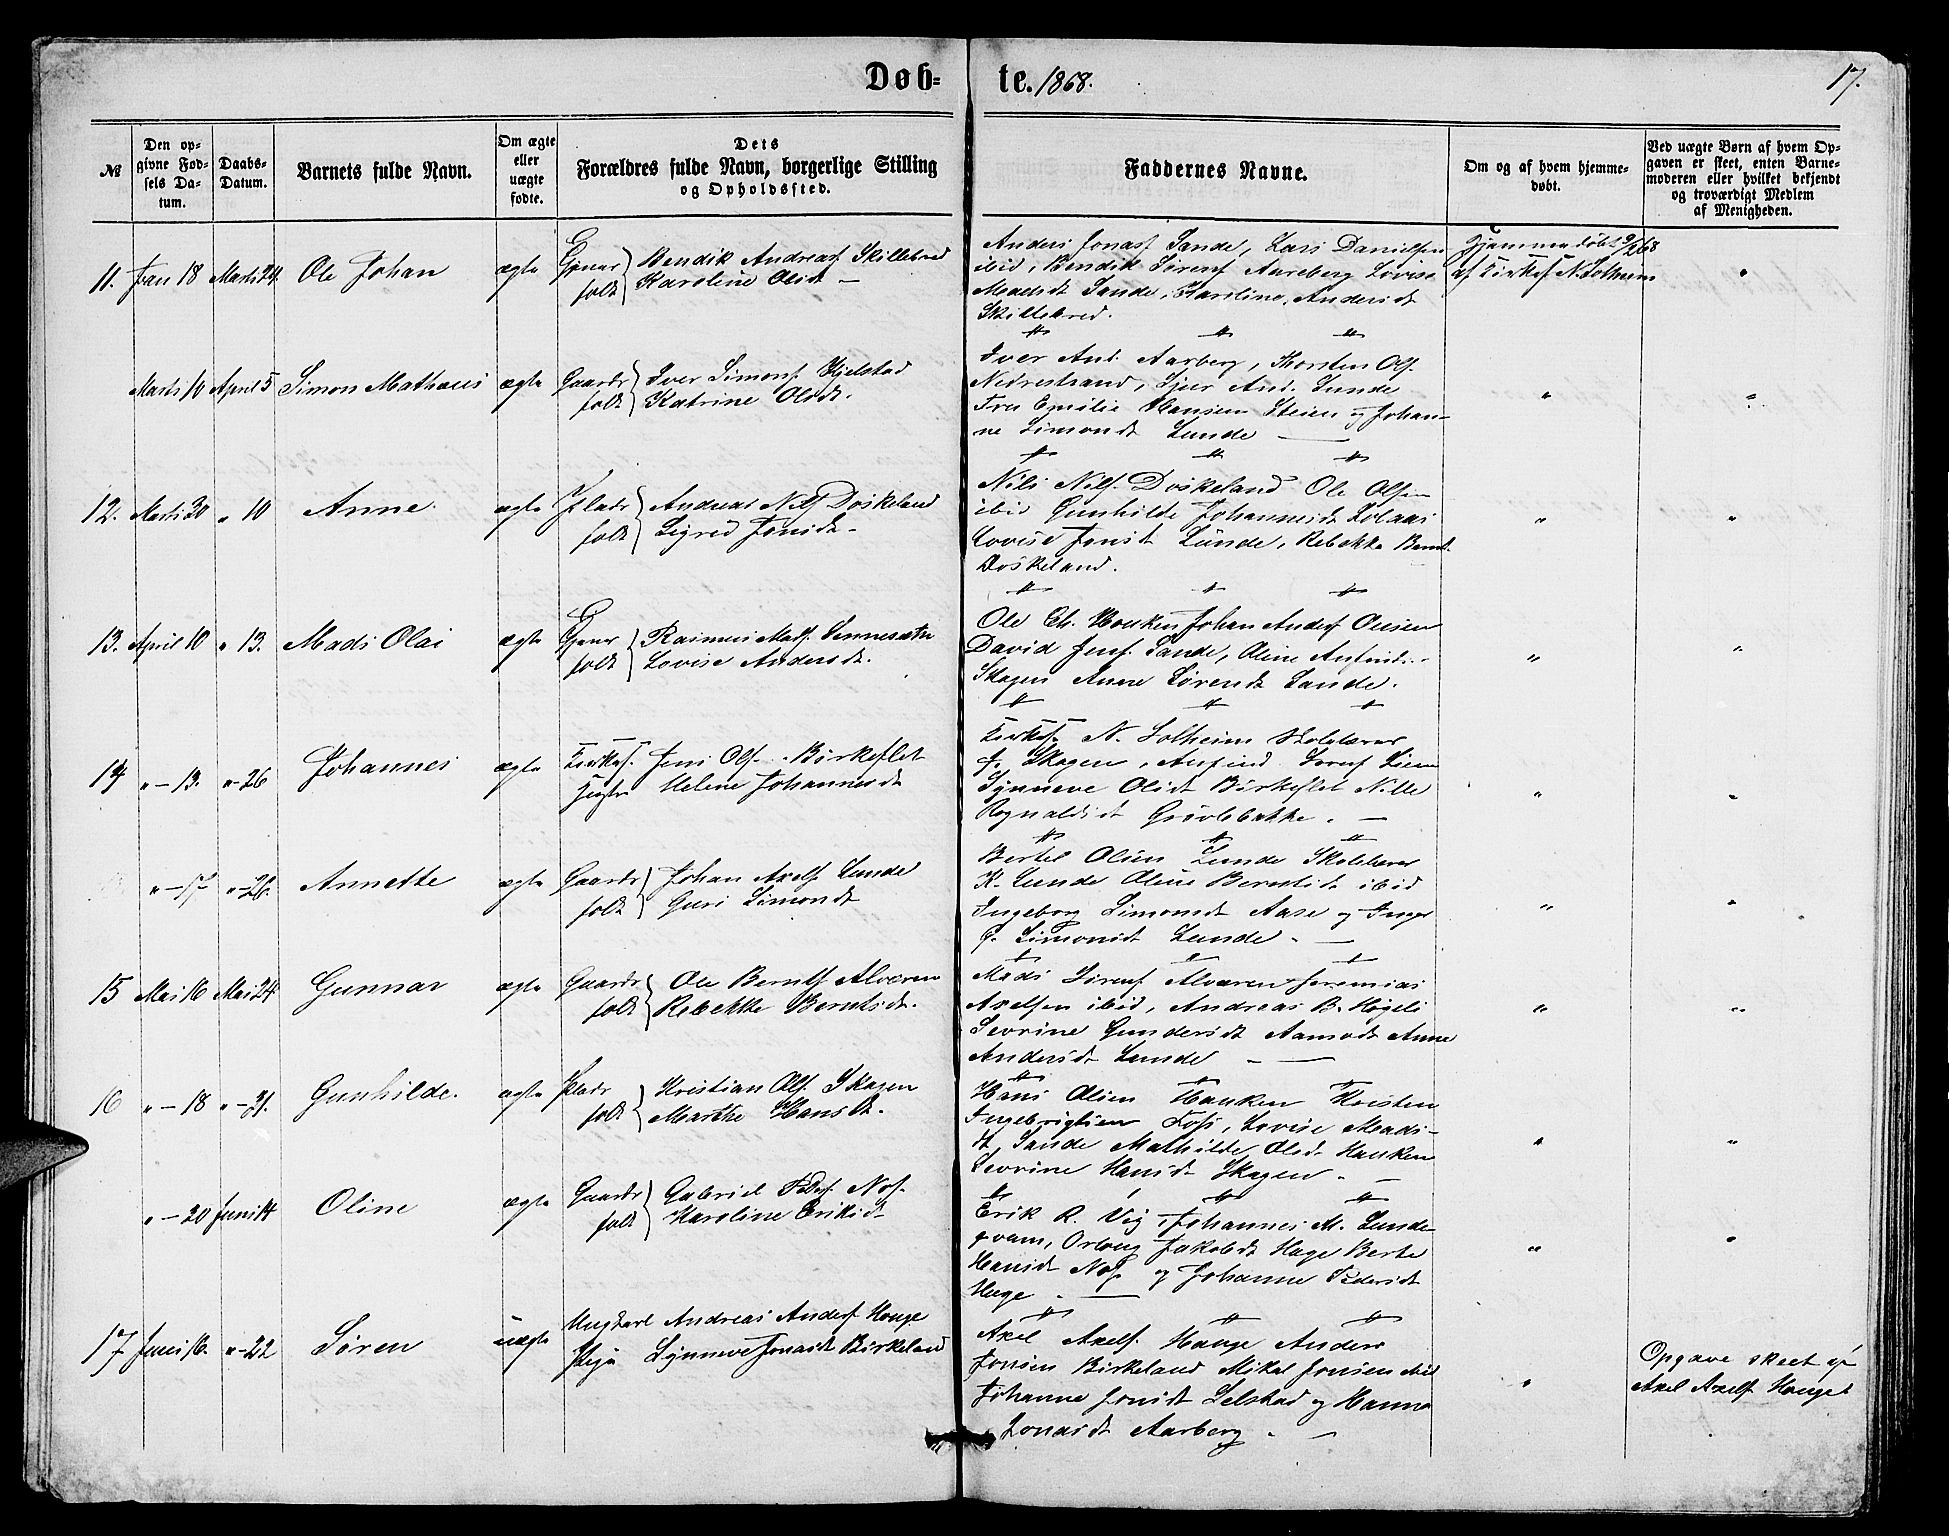 Døb= te. 1868. 17.
№ | Den opgivne Fødsels Datum. | Daabs-Datum. | Barnets fulde Navn. | Om ægte eller uægte fødte. | Dets Forældres fulde Navn, borgerlige Stilling og Opholdssted. | Faddernes Navne. | Om og af hvem hjemmedøbt. | Ved uægte Børn af hvem Opgaven er skeet, enten Barnemoderen eller hvilket bekjendt og troværdigt Medlem af Menigheden.
11. Jan 18 Marts 24. Ole Johan ægte Bendik Andreas Skillebred
folk Karoline Olsdt —
Anders Jonas Sande, Lars Danielsen
ibid, Bendik Aareberg Lovise
Madsdt Sande, Karoline Andersdt
Skillebred.
Hjemmedøbt
af Kirkes N. Solheim
Marts 10 April 5 Simon Mathæus ægte Gaardr Iver Simons. Hjelstad
folk Katrine Olsdt.
Iver And. Aarberg, Thorsten Ols.
Nedrestrand, And. Sunde
Fru Emilie Hansen Steien og Johan-
ne Simonsdt Lunde —
12. Marts 20 " 10 Anne. ægte Pladr Andreas Nils Doskeland
folk Sigrid Jensdt —
Nils Nils. Doskeland Ole Olsen
ibid Gunhilde Johannesdt
Lovise Jensdt Lunde, Rebekka Bernt.
Doskeland.
13. April 10 " 13. Mads Olai ægte Rasmus Mads.
folk Lovise Andersdt.
Ole Hauken Johan Anders
David Jens. Sande, Oline
Skagen Anne Sørensdt Sande.
14 " – 13. " – 26 Johannes ægte Kirkes. Jens Ols. Birkeflet
Helene Johannesdt
Kirkes. N. Solheim Skolelærer
J. Skagen,
Synneve Olsdt Birkeflet Nille
Rognaldsdt Grøvlebakke. —
" – 17 " – 26. Annette ægte Gaardr Johan Axels. Lunde
folk Guri Simonsdt
Bertel Olsen Lunde Skolelærer
K. Lunde Oline Berntsdt ibid
Ingeborg Simonsdt Aase og Inger
Simonsdt Lunde. —
15 Mai 16 Mai 24 Gunnar ægte Gaardr Ole Bernts Alværen
folk Rebekke Berntsdt.
Mads Alværen Jeremias
Axelsen ibid, Andreas B. Høgeli
Sevrine Gundersdt Aamodt Anne
Andersdt Lunde —
16 " – 18 " – 31. Gunhilde. ægte Pladr Kristian Ols. Skagen
folk Marthe Hansdt.
Hans Olsen Hauken Kristen
Ingebrigtsen Foss, Lovise Mads-
dt Sande Mathilde Olsdt Hauken
Sevrine Hansdt Skagen. —
" – 20 Juni 14 Oline ægte Gaardr Gabriel Peders. Nos.
folk Karoline Eriksdt
Erik R. Vig, Johannes M. Lunde
qvam, Jakobsdt Hage Berte
Hansdt Nos og Johanne Pedersdt
Hage. —
17 Juni 16. " – 22 Søren uægte Ungkarl Andreas Anders Hauge
Pige Synneve Jonasdt Birkeland
Axel Axels. Hauge Anders
Jonsen Birkeland Mikel Jonsen ibid
Johanne Jonsdt Selstad og Hanna
Jonasdt Aarberg. —
Opgave skeet af
Axel Axels Hauge